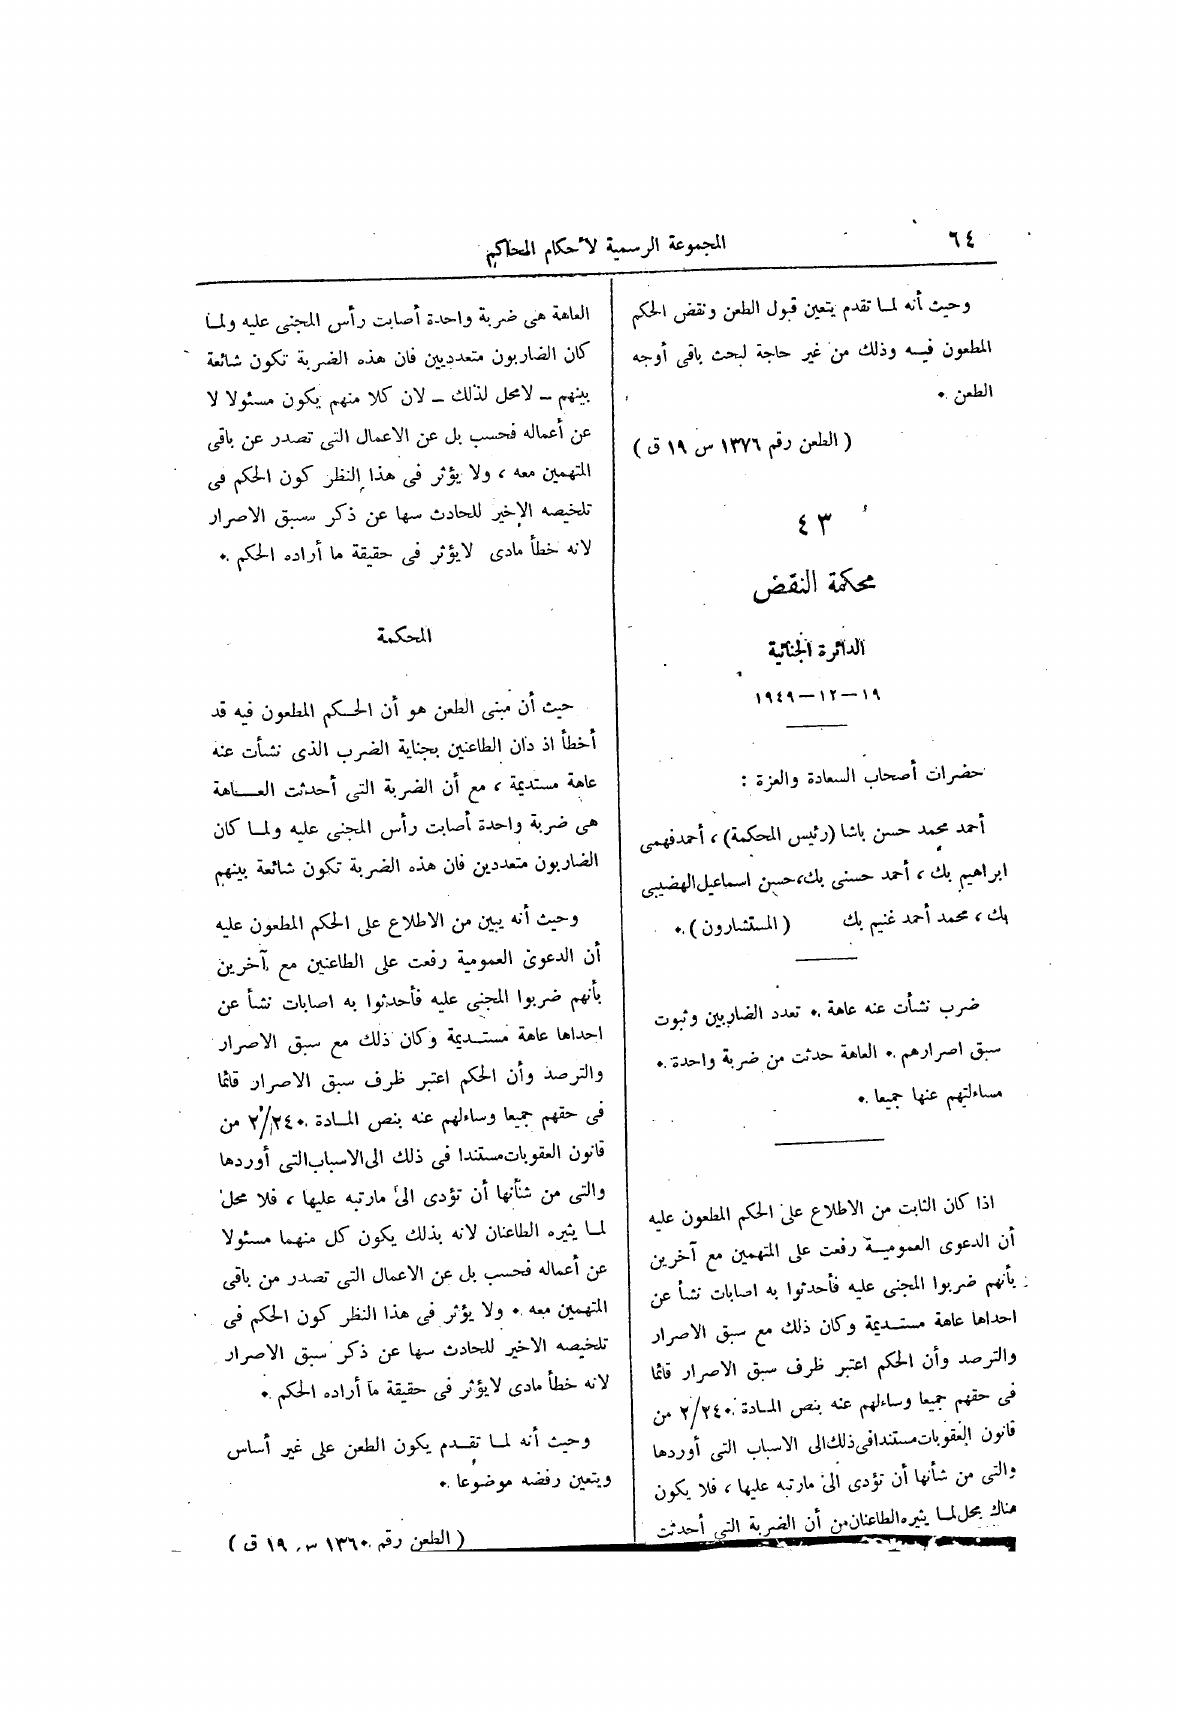 ٦٤
المجموعة الرسمية لأحكام المحاكم
وحيث أنه لما تقدم يتعين قبول الطعن ونقض الحكم
المطعون فيه وذلك من غير حاجة لبحث باقى أوجه
الطعن .
( الطعن رقم ١٣٧٦ س ١٩ ق )
٤٣
محكمة النقض
الدائرة الجنائية
١٩-١٢-١٩٤٩
حضرات أصحاب السعادة والعزة :
أحمد محمد حسن باشا (رئيس المحكمة) ، أحمد فهمى
ابراهيم بك ، أحمد حسنى بك، حسن اسماعيل الهضيبى
بك ، محمد أحمد غنيم بك ( المستشارون ) .
ضرب نشأت عنه عاهة . تعدد الضاربين وثبوت
سبق اصرارهم . العاهة حدثت من ضربة واحدة .
مساءلتهم عنها جميعا .
اذا كان الثابت من الاطلاع على الحكم المطعون عليه
أن الدعوى العمومية رفعت على المتهمين مع آخرين
بأنهم ضربوا المجنى عليه فأحدثوا به اصابات نشأ عن
احداها عاهة مستديمة وكان ذلك مع سبق الاصرار
والترصد وأن الحكم اعتبر ظرف سبق الاصرار قائما
فى حقهم جميعا وساءلهم عنه بنص المادة ٢/٢٤٠ من
قانون العقوبات مستندا فى ذلك الى الاسباب التى أوردها
والتى من شأنها أن تؤدى الى مارتبه عليها ، فلا يكون
هناك محل لما يثيره الطاعنان من أن الضربة التى أحدثت
العاهة هى ضربة واحدة أصابت رأس المجنى عليه ولما
كان الضاربون متعدديين فان هذه الضربة تكون شائعة
بينهم – لامحل لذلك – لان كلا منهم يكون مسئولا لا
عن أعماله فحسب بل عن الاعمال التى تصدر عن باقى
المتهمين معه ، ولا يؤثر فى هذا النظر كون الحكم فى
تلخيصه الاخير للحادث سها عن ذكر سبق الاصرار
لانه خطأ مادى لايؤثر فى حقيقة ما أراده الحكم .
المحكمة
حيث أن مبنى الطعن هو أن الحكم المطعون فيه قد
أخطأ اذ دان الطاعنين بجناية الضرب الذى نشأت عنه
عاهة مستديمة ، مع أن الضربة التى أحدثت العاهة
هى ضربة واحدة أصابت رأس المجنى عليه ولما كان
الضاربون متعددين فان هذه الضربة تكون شائعة بينهم
وحيث أنه يبين من الاطلاع على الحكم المطعون عليه
أن الدعوى العمومية رفعت على الطاعنين مع آخرين
بأنهم ضربوا المجنى عليه فأحدثوا به اصابات نشأ عن
احداها عاهة مستديمة وكان ذلك مع سبق الاصرار
والترصد وأن الحكم اعتبر ظرف سبق الاصرار قائما
فى حقهم جميعا وساءلهم عنه بنص المادة ٢/٢٤٠ من
قانون العقوبات مستندا فى ذلك الى الاسباب التى أوردها
والتى من شأنها أن تؤدى الى مارتبه عليها ، فلا محل
لما يثيره الطاعنان لانه بذلك يكون كل منهما مسئولا
عن أعماله فحسب بل عن الاعمال التى تصدر من باقى
المتهمين معه . ولا يؤثر فى هذا النظر كون الحكم فى
تلخيصه الاخير للحادث سها عن ذكر سبق الاصرار
لانه خطأ مادى لايؤثر فى حقيقة ما أراده الحكم .
وحيث أنه لما تقدم يكون الطعن على غير أساس
ويتعين رفضه موضوعا .
( الطعن رقم ١٣٦٠ س ١٩ ق )